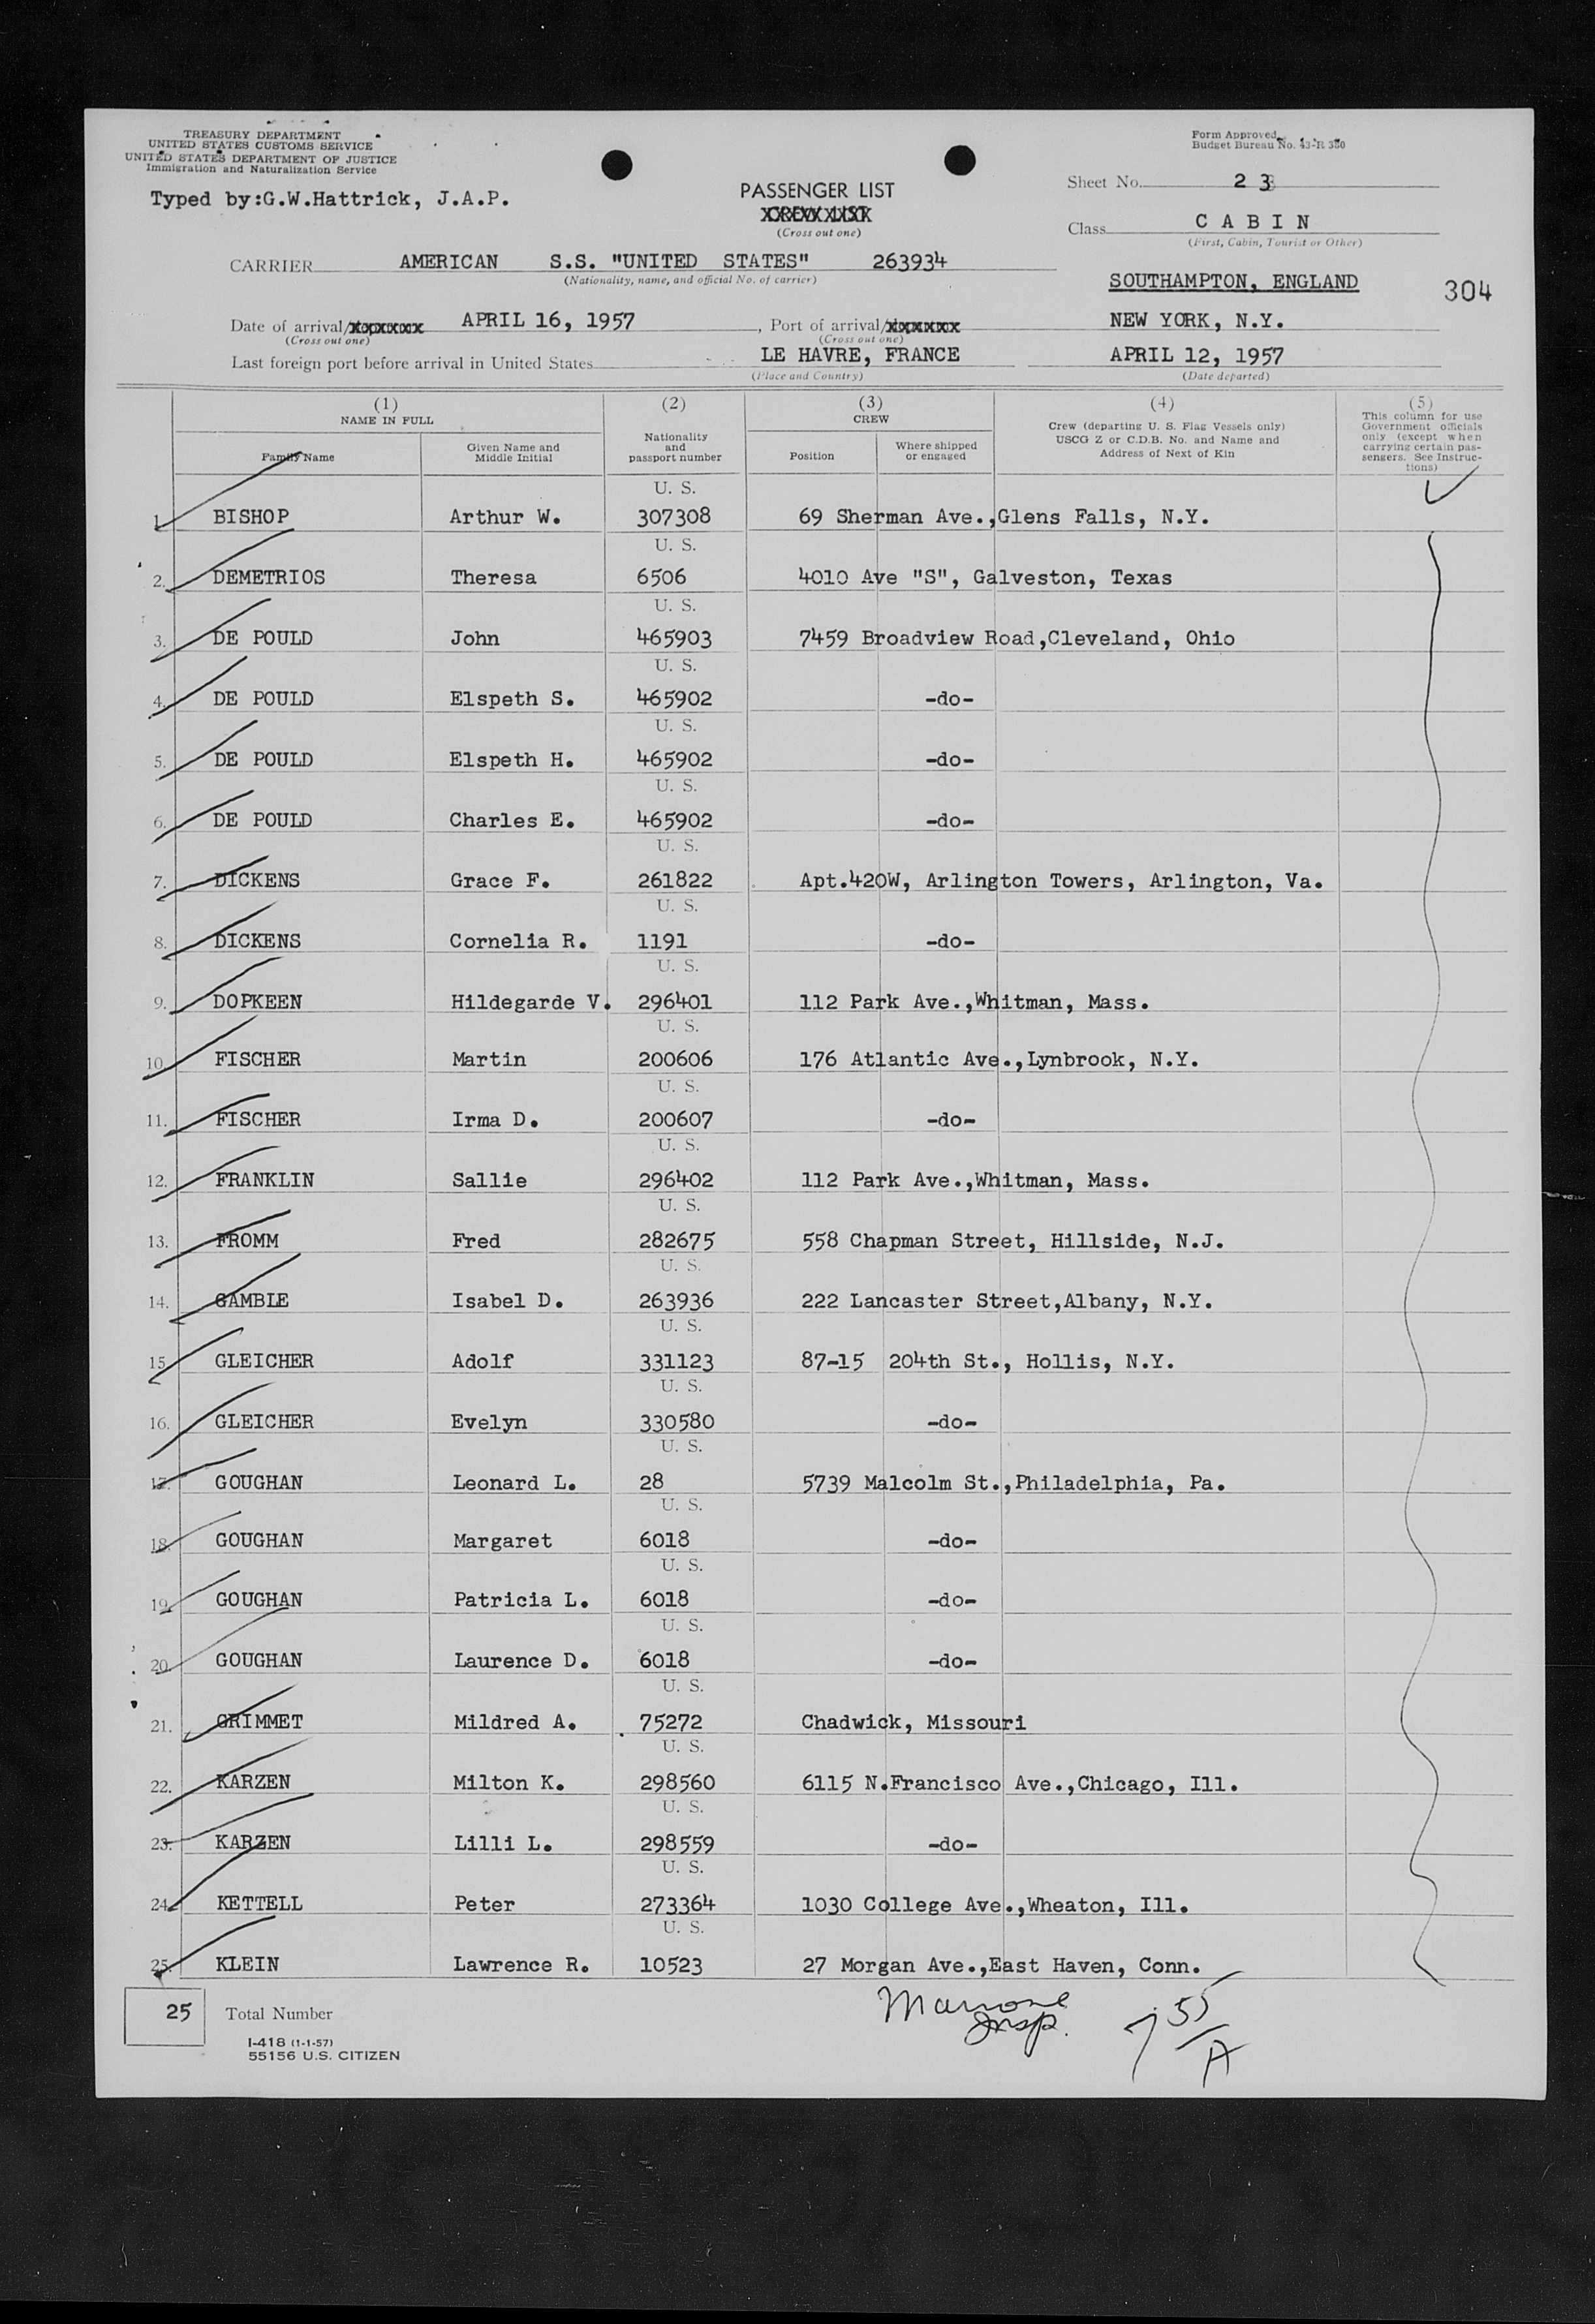 TREASURY DEPARTMENT
UNITED STATES CUSTOMS SERVICE
UNITED STATES DEPARTMENT OF JUSTICE
Immigration and Naturalization Service
Typed by:G.W.Hattrick, J.A.P.
Form Approved
Budget Bureau No. 43-R 380
PASSENGER LIST
(Cross out one)
Sheet No. 23
Class C A B I N
(First, Cabin, Tourist or Other)
CARRIER AMERICAN S.S. "UNITED STATES" 263934
(Nationality, name, and official No. of carrier)
SOUTHAMPTON, ENGLAND 304
Date of arrival/ APRIL 16, 1957, Port of arrival/ NEW YORK, N.Y.
(Cross out one) (Cross out one)
Last foreign port before arrival in United States LE HAVRE, FRANCE APRIL 12, 1957
(Place and Country) (Date departed)
(1) NAME IN FULL
Family Name
Given Name and Middle Initial
(2) Nationality and passport number
(3) CREW
Position
Where shipped or engaged
(4) Crew (departing U. S. Flag Vessels only) USCG Z or C.D.B. No. and Name and Address of Next of Kin
(5) This column for use Government officials only (except when carrying certain passengers. See Instructions)
U. S.
1. BISHOP Arthur W. 307308 69 Sherman Ave.,Glens Falls, N.Y.
U. S.
2. DEMETRIOS Theresa 6506 4010 Ave "S", Galveston, Texas
U. S.
3. DE POULD John 465903 7459 Broadview Road,Cleveland, Ohio
U. S.
4. DE POULD Elspeth S. 465902 -do-
U. S.
5. DE POULD Elspeth H. 465902 -do-
U. S.
6. DE POULD Charles E. 465902 -do-
U. S.
7. DICKENS Grace F. 261822 Apt.420W, Arlington Towers, Arlington, Va.
U. S.
8. DICKENS Cornelia R. 1191 -do-
U. S.
9. DOPKEEN Hildegarde V. 296401 112 Park Ave.,Whitman, Mass.
U. S.
10. FISCHER Martin 200606 176 Atlantic Ave.,Lynbrook, N.Y.
U. S.
11. FISCHER Irma D. 200607 -do-
U. S.
12. FRANKLIN Sallie 296402 112 Park Ave.,Whitman, Mass.
U. S.
13. FROMM Fred 282675 558 Chapman Street, Hillside, N.J.
U. S.
14. GAMBLE Isabel D. 263936 222 Lancaster Street,Albany, N.Y.
U. S.
15 GLEICHER Adolf 331123 87-15 204th St., Hollis, N.Y.
U. S.
16. GLEICHER Evelyn 330580 -do-
U. S.
17. GOUGHAN Leonard L. 28 5739 Malcolm St.,Philadelphia, Pa.
U. S.
18. GOUGHAN Margaret 6018 -do-
U. S.
19. GOUGHAN Patricia L. 6018 -do-
U. S.
20. GOUGHAN Laurence D. 6018 -do-
U. S.
21. GRIMMET Mildred A. 75272 Chadwick, Missouri
U. S.
22. KARZEN Milton K. 298560 6115 N.Francisco Ave.,Chicago, Ill.
U. S.
23. KARZEN Lilli L. 298559 -do-
U. S.
24. KETTELL Peter 273364 1030 College Ave.,Wheaton, Ill.
U. S.
25. KLEIN Lawrence R. 10523 27 Morgan Ave.,East Haven, Conn.
25 Total Number
I-418 (1-1-57)
55156 U.S. CITIZEN
Marrone
Insp.
755/A